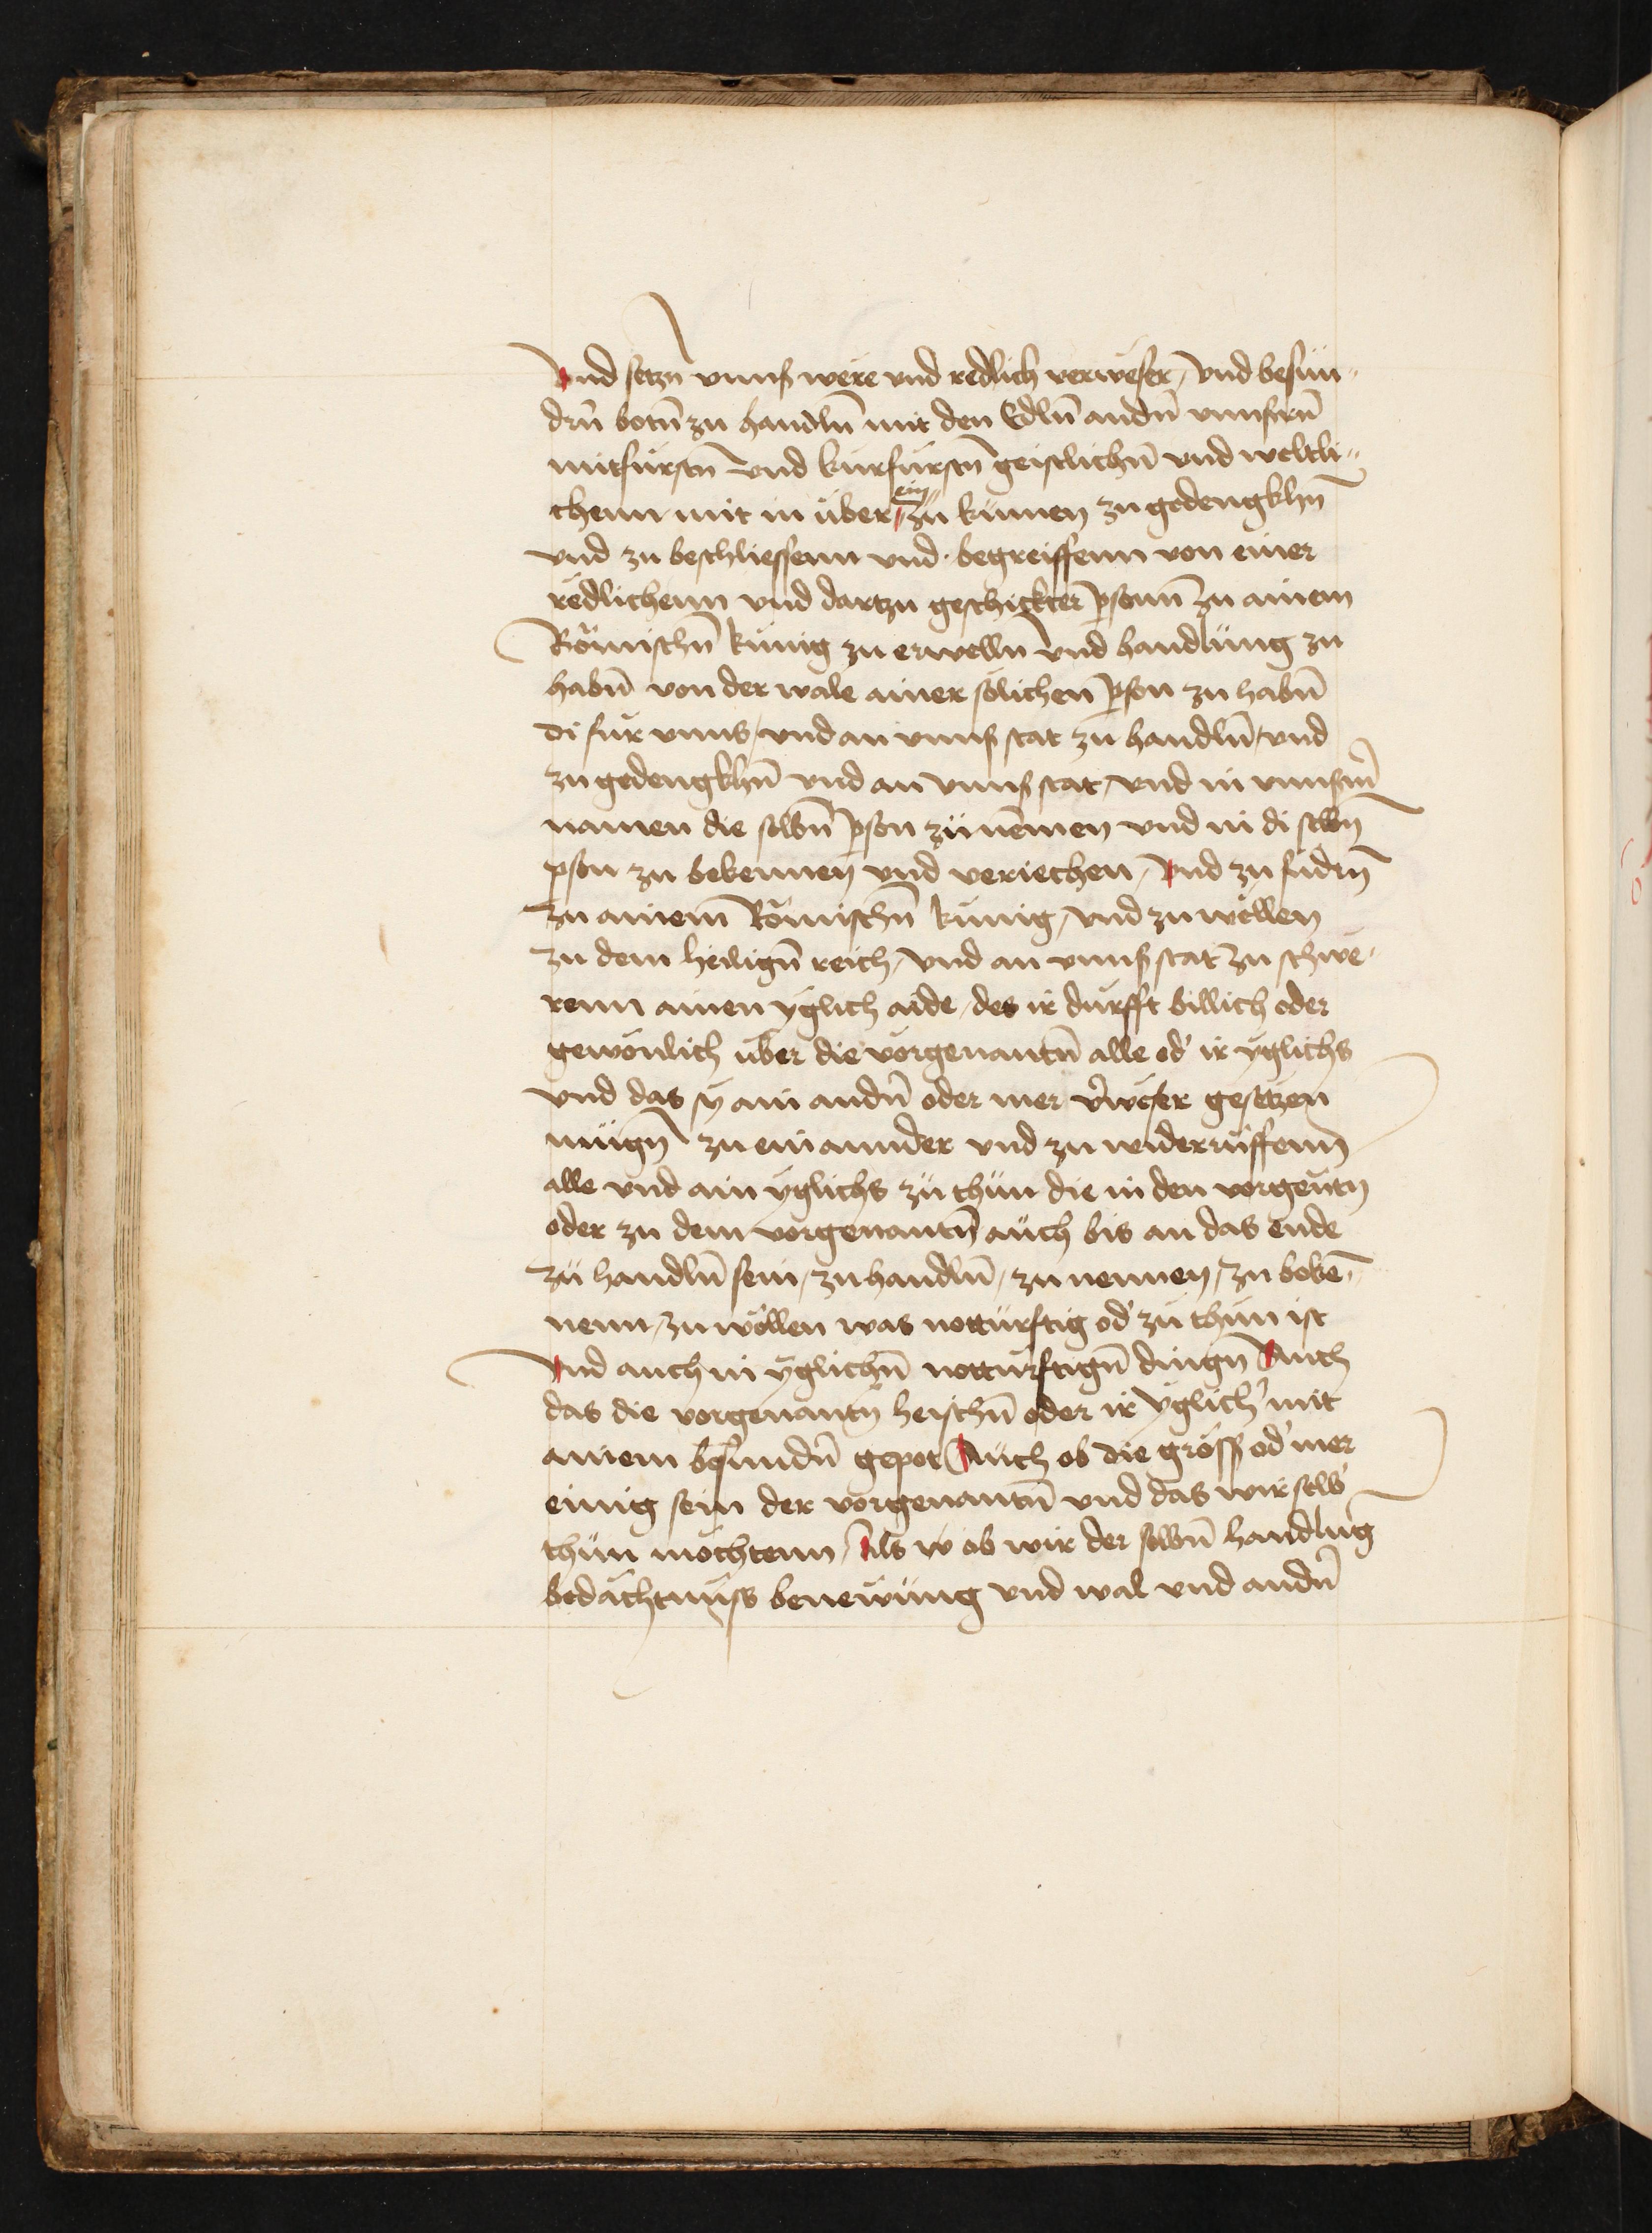 Vnd setzn̄ vnnß wëre vnd redlich verweser / vnd besün„
drn̄ botn̄ zu handln̄ mit den Edln̄ andn̄ vnnsern̄
mitfürstn̄ vnd kurfürstn̄ geistlichn̄ vnd weltli„
chenn mit in über ein zu kümen zu gedengkhn̄
vnd zu beschliessenn vnd begreiffenn von einer
redlichenn vnd dartzu geschickter p̲sonn̄ zu ainem
Römischn̄ künig zu erwelln̄ vnd handlüng zu
habn̄ von der wale ainer sölichen p̲son zu habn̄
di für vnns / vnd an vnnß stat zu handln̄ / vnd
zu gedengkhn̄ vnd an vnnß stat / vnd in vnnserm̄
namen die selbn̄ p̲son zü nemen vnd in di selbn̄
p̲son zu bekennen vnd veriechen / Vnd zu fudrn̄
zu ainem Römischn̄ künig / vnd zu wellen
zu dem heilign̄ reich / vnd an vnnß stat zu schwe„
renn ainen yglich aide / des ir durfft billich oder
gewonlich über die vorgenantn̄ alle od' ir yglichs
vnd das sy ain andn̄ oder mer v̄weser gesetzen
mügn̄ zu ein annder vnd zu widerrüffenn
alle vnd ain yglichs zü thün die in den vorgen̄tn
oder zu dem vorgenantn̄ auch bis an das ende
zü handln̄ sein / zu handln̄ / zu nennen / zu beken̄„
nenn / zu wöllen was nottürftig od' zu thün ist
Vnd auch in yglichn̄ nottürftign̄ dingn̄ Auch
das die vorgenantn̄ heischn̄ oder ir yglich' mit
ainem besundn̄ gepot Auch ob die größ od' mer
einig sein der vorgenantn̄ vnd das wir selb'
thün möchtenn / Als w ob wir der selbn̄ handlūg
bedachtnüss benewung vnd wal vnd andn̄